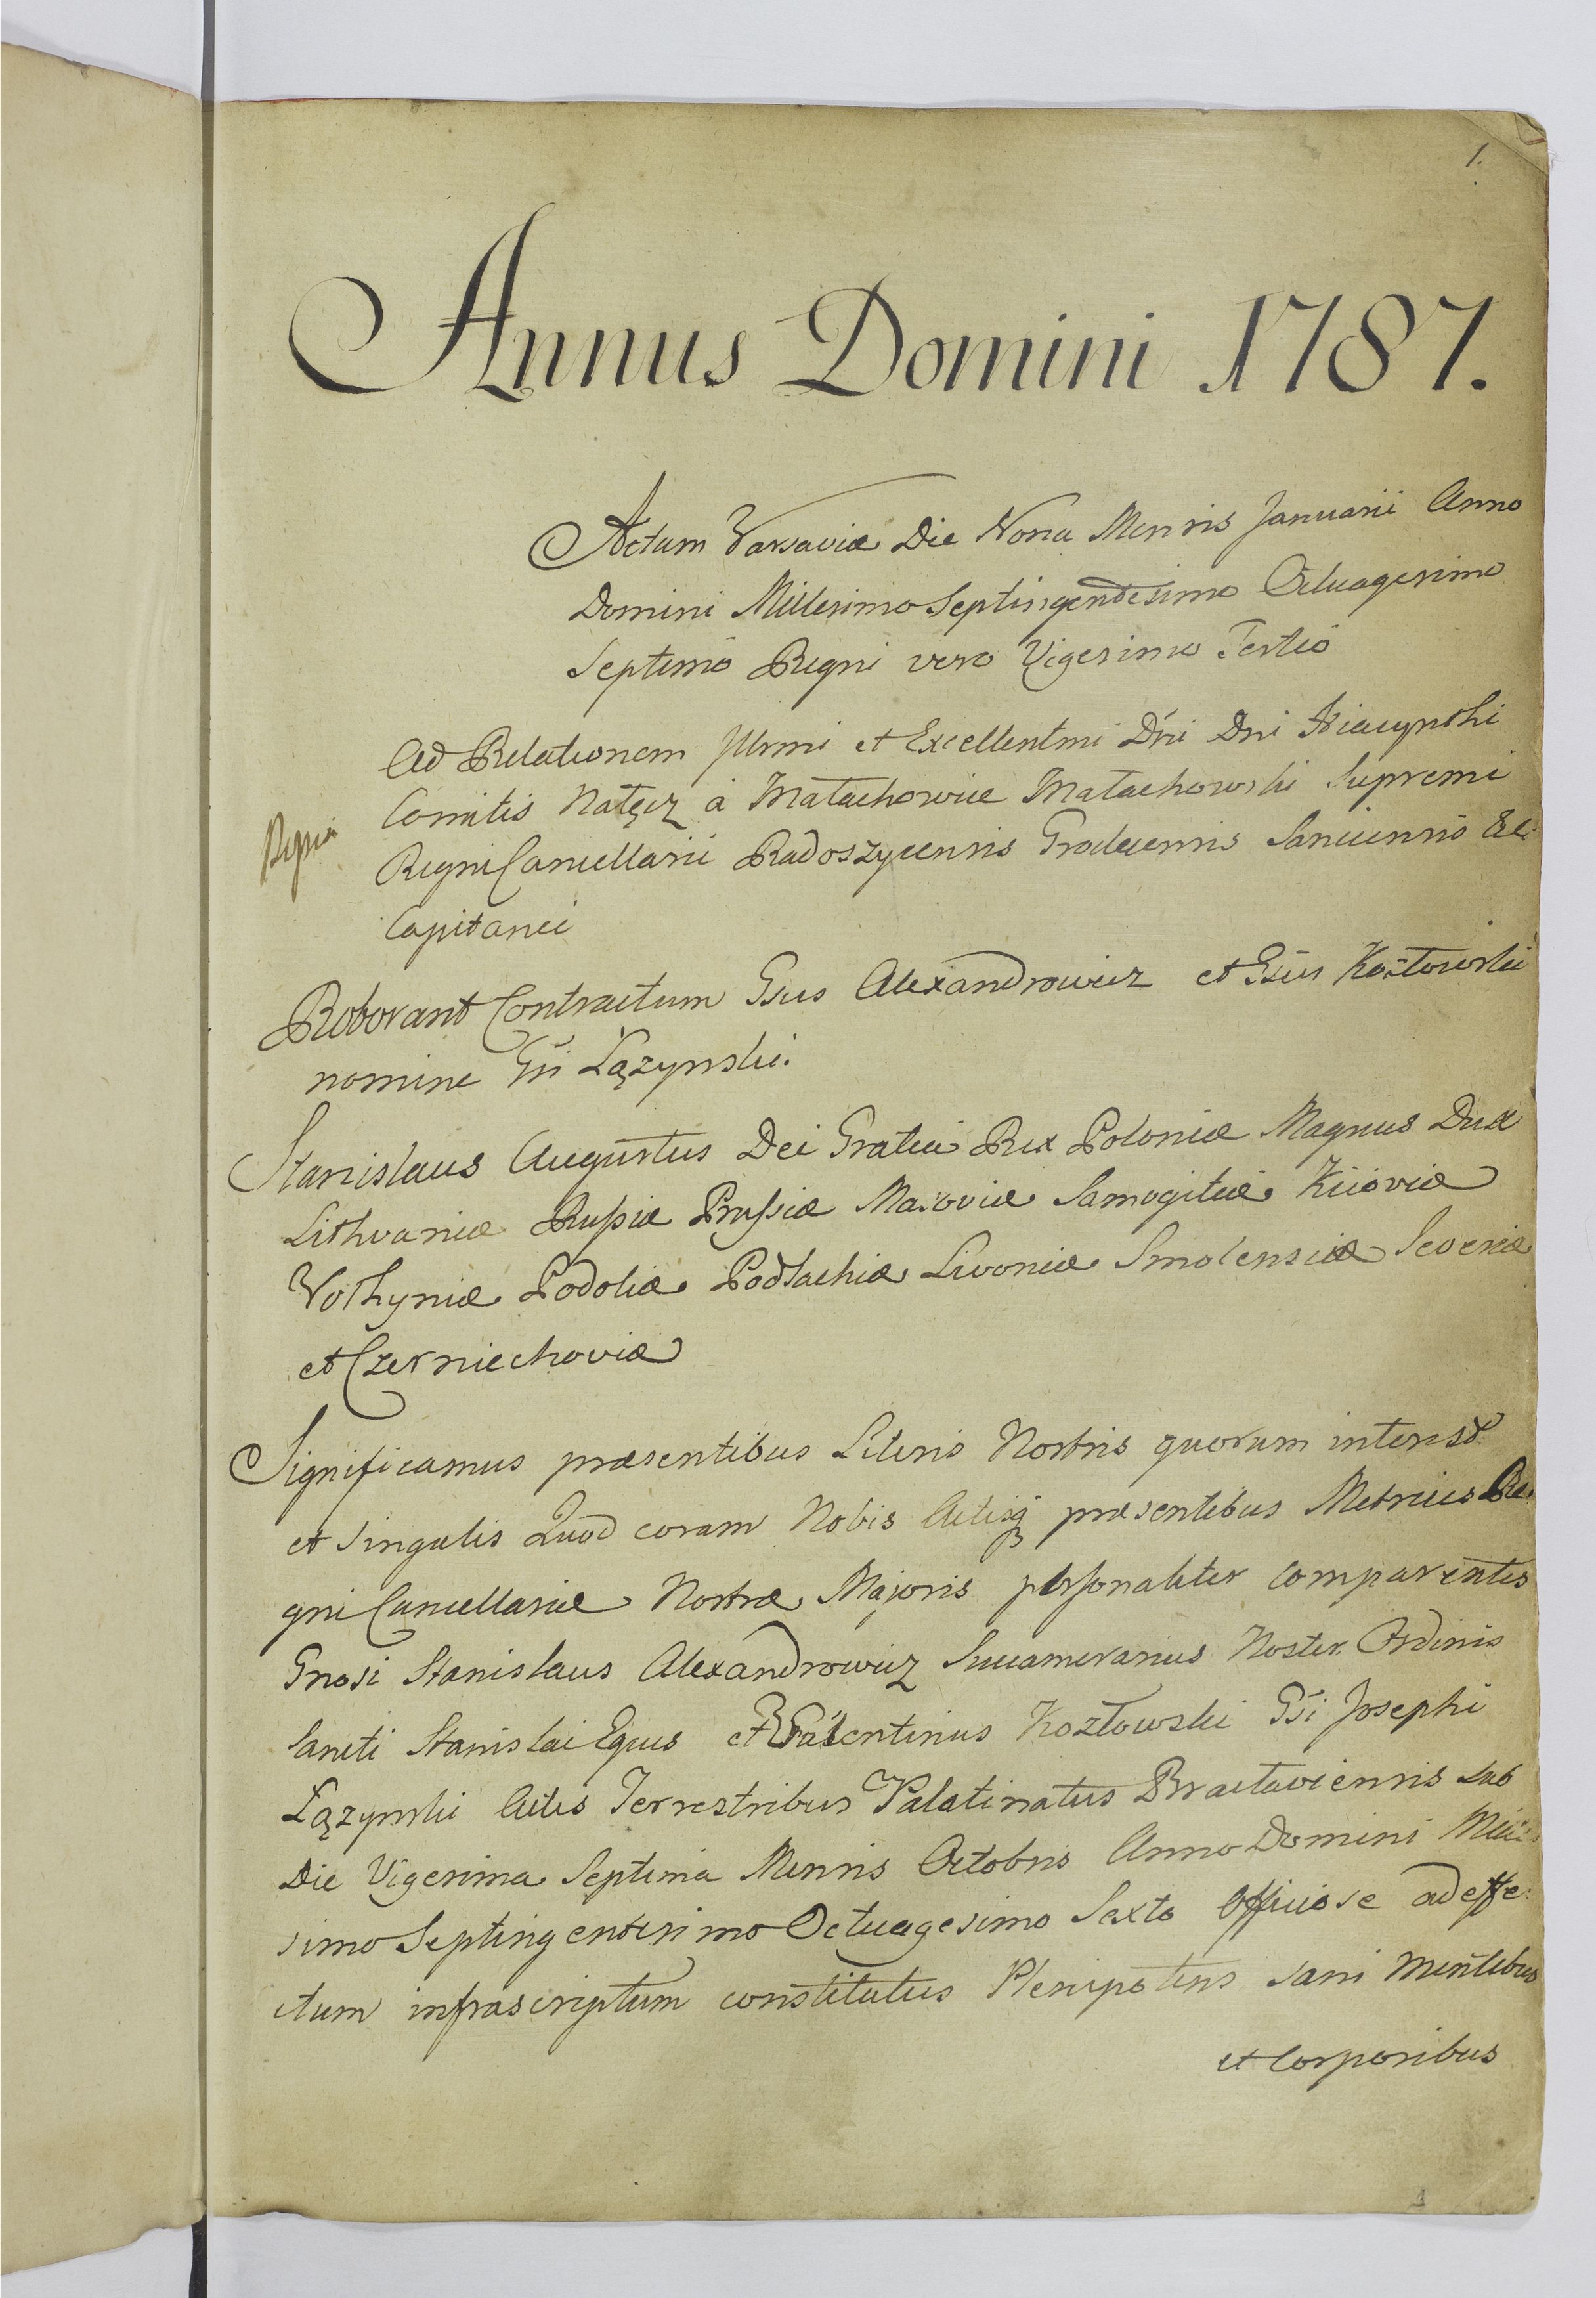 1.
Annus Domini 1787.
Actum Varsaviæ Die Nona Mensis Januarii Anno
Domini Millesimo Septingentesimo Octuagesimo
Septimo Regni vero Vigesimo Tertio
Ad Relationem Illrmi et Excellentmi Dni Dni Hiacynthi
Comitis Nałęcz a Małachowice Małachowski Supremi
Regni Cancellarii Radoszycensis Grodecensis Sanciensis Etc
Capitanei
Roborant Contractum Gsus Alexandrowicz et Gsus Kozłowski
nomine Gsi Łązynski.
Stanislaus Augustus Dei Gratia Rex Poloniæ Magnus Dux
Lithvaniæ Russiæ Prussiæ Masoviæ Samogitiæ Kiioviæ
Volhyniæ Podoliæ Podlachiæ Livoniæ Smolensiæ Severiæ
et Czerniechoviæ
Significamus præsentibus Literis Nostris quorum interest
et singulis Quod coram Nobis Actisq præsentibus Metrices Re
gni Cancellariæ Nostræ Majoris personaliter comparentes
Gnosi Stanislaus Alexandrowicz Succamerarius Noster Ordinis
Sancti Stanislai Eques et Valentinus Kozłowski Gsi Josephi
Łązynski Actis Terrestribus Palatinatus Bracłaviensis sub
Die Vigesima Septima Mensis Octobris Anno Domini Mille
simo Septingentesimo Octuagesimo Sexto Officiose ad effe
ctum infrascriptum constitutus Plenipotens sani mentibus
et Corporibus